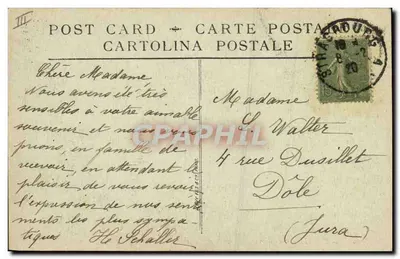 III
POST CARD - CARTE POSTALE
CARTOLINA POSTALE
STRASBOURG
Chère Madame
Nous avons été très
sensibles à votre aimable
souvenir et nous vous
prions, en famille de
recevoir, en attendant le
plaisir de vous revoir
l'expression de nos senti
ments les plus sympa-
tiques H. Schaller
CPAPHIL
Madame
L. Walter
4 rue Dusillet
Dôle
(Jura)